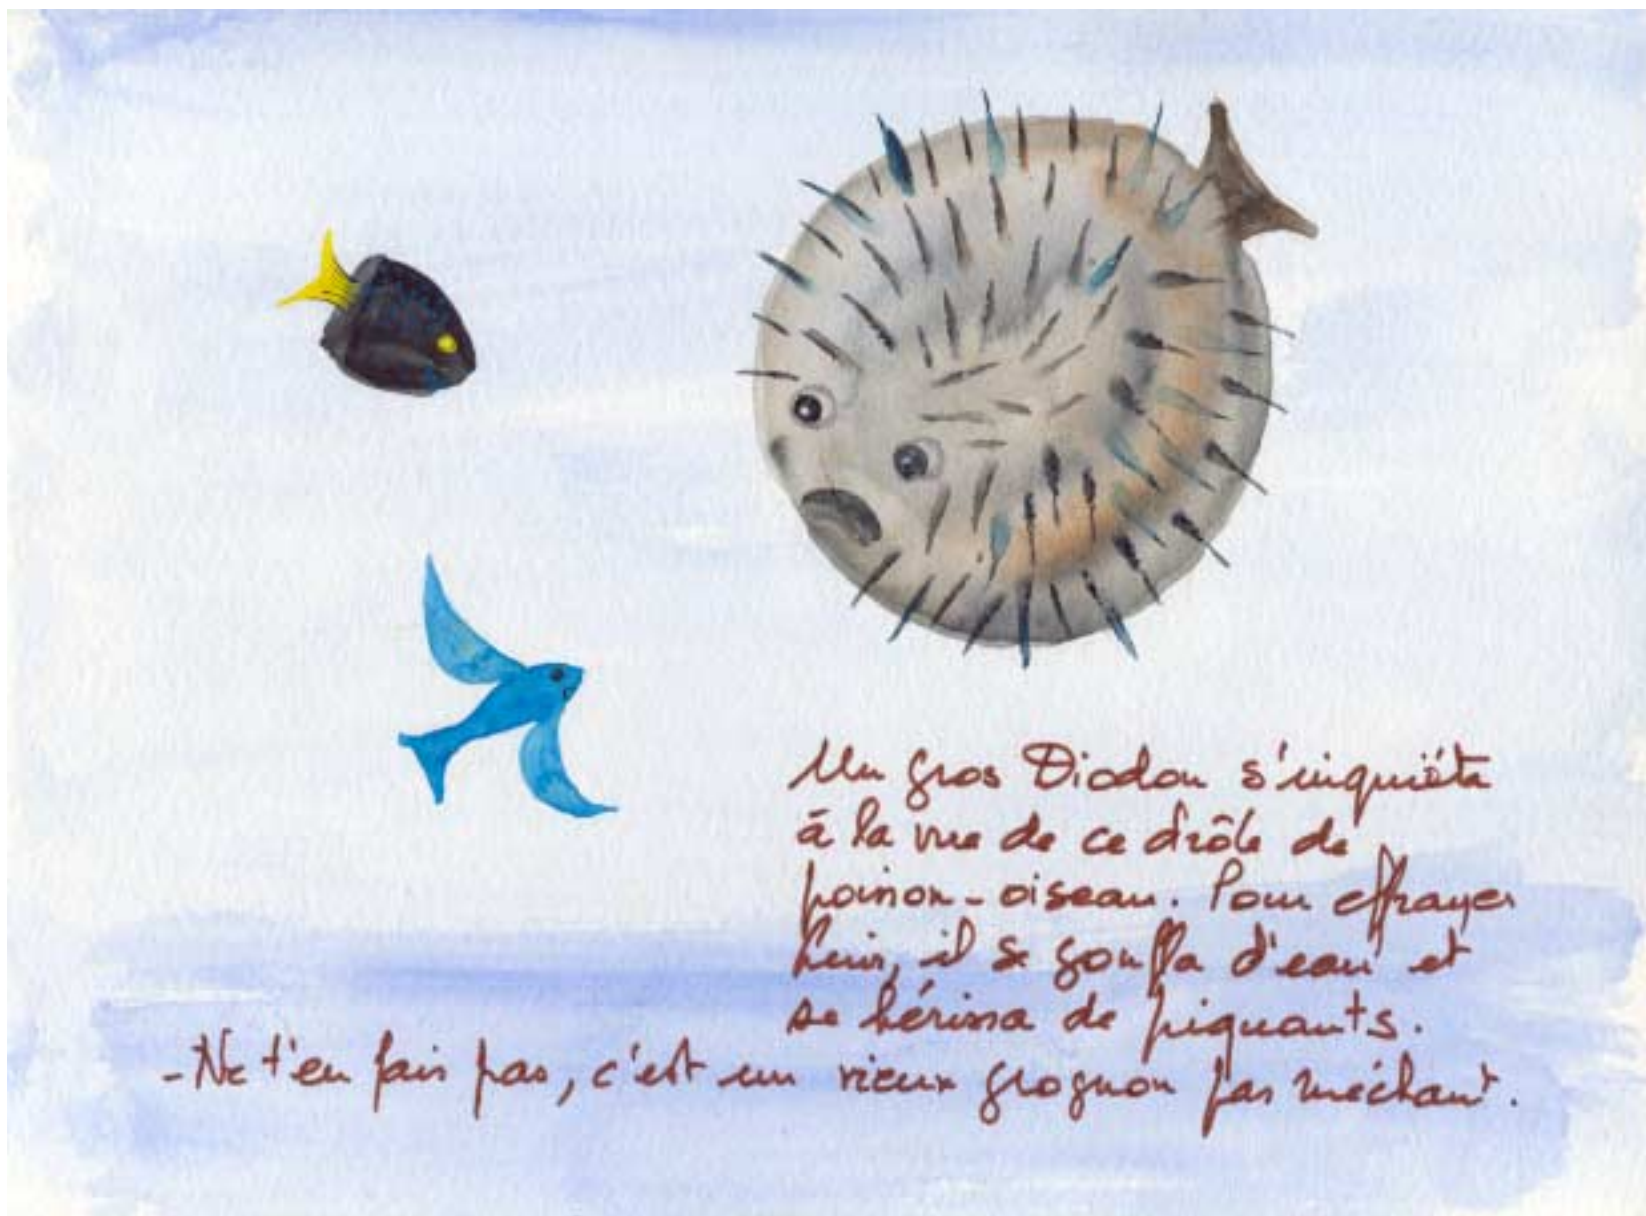 Un gros Diodon s'inquiéta
à la vue de ce drôle de
poisson-oiseau. Pour effrayer
il se gonfla d'eau et
se hérissa de piquants.
- Ne t'en fais pas, c'est un vieux grognon pas méchant.